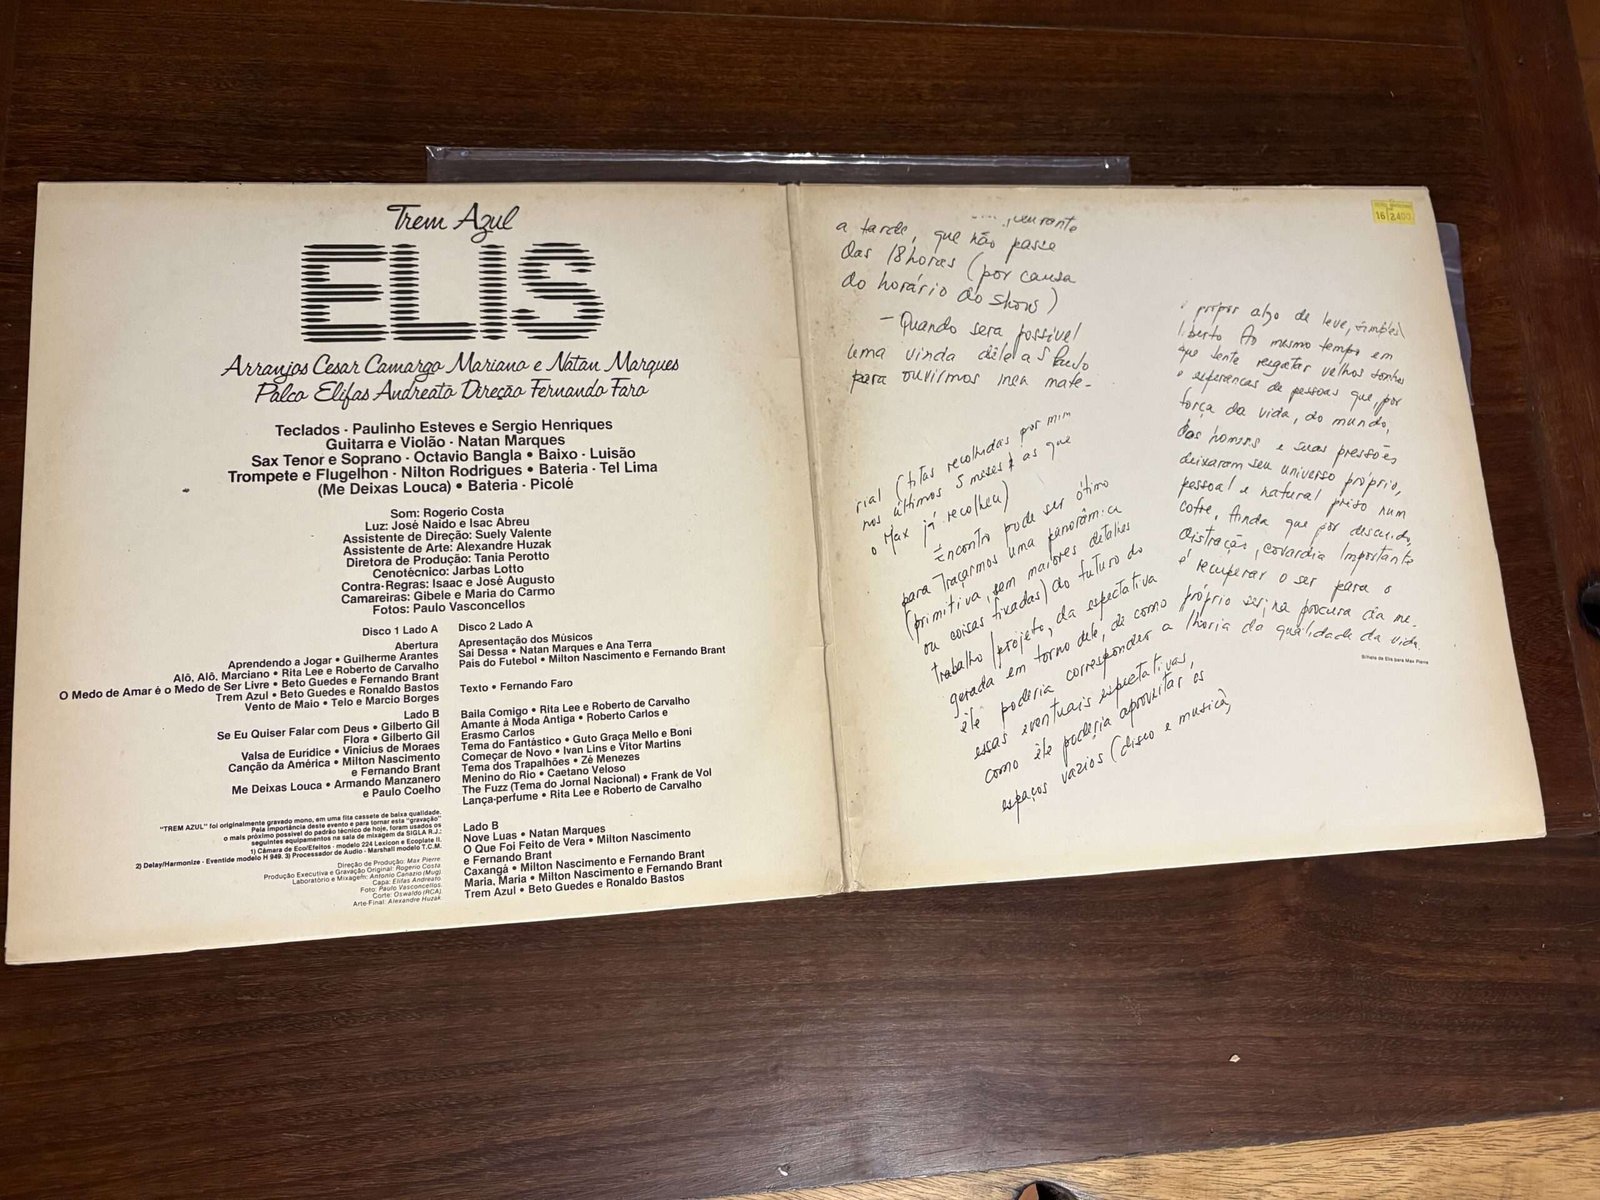 Trem Azul
ELIS
Arranjos Cesar Camargo Mariano e Natan Marques
Palco Elifas Andreato Direção Fernando Faro
Teclados · Paulinho Esteves e Sergio Henriques
Guitarra e Violão · Natan Marques
Sax Tenor e Soprano · Octavio Bangla • Baixo · Luisão
Trompete e Flugelhon · Nilton Rodrigues • Bateria · Tel Lima
(Me Deixas Louca) • Bateria · Picolé
Som: Rogerio Costa
Luz: José Naido e Isac Abreu
Assistente de Direção: Suely Valente
Assistente de Arte: Alexandre Huzak
Diretora de Produção: Tania Perotto
Cenotécnico: Jarbas Lotto
Contra-Regras: Isaac e José Augusto
Camareiras: Gibele e Maria do Carmo
Fotos: Paulo Vasconcellos
Disco 1 Lado A
Abertura
Aprendendo a Jogar • Guilherme Arantes
Alô, Alô, Marciano • Rita Lee e Roberto de Carvalho
O Medo de Amar é o Medo de Ser Livre • Beto Guedes e Fernando Brant
Trem Azul • Beto Guedes e Ronaldo Bastos
Vento de Maio • Telo e Marcio Borges
Lado B
Se Eu Quiser Falar com Deus • Gilberto Gil
Flora • Gilberto Gil
Valsa de Eurídice • Vinicius de Moraes
Canção da América • Milton Nascimento
e Fernando Brant
Me Deixas Louca • Armando Manzanero
e Paulo Coelho
"TREM AZUL" foi originalmente gravado mono, em uma fita cassete de baixa qualidade.
Pela importância deste evento e para tornar esta "gravação"
o mais próximo possível do padrão técnico de hoje, foram usados os
seguintes equipamentos na sala de mixagem da SIGLA R.J.:
1) Câmara de Eco/Efeitos - modelo 224 Lexicon e Ecoplate II.
2) Delay/Harmonize - Eventide modelo H 949. 3) Processador de Audio - Marshall modelo T.C.M.
Direção de Produção: Max Pierre
Produção Executiva e Gravação Original: Rogerio Costa
Laboratório e Mixagem: Antonio Canazio (Mug)
Capa: Elifas Andreato
Foto: Paulo Vasconcellos
Corte: Oswaldo (RCA)
Arte-Final: Alexandre Huzak
Disco 2 Lado A
Apresentação dos Músicos
Sai Dessa • Natan Marques e Ana Terra
Pais do Futebol • Milton Nascimento e Fernando Brant
Texto • Fernando Faro
Baila Comigo • Rita Lee e Roberto de Carvalho
Amante à Moda Antiga • Roberto Carlos e
Erasmo Carlos
Tema do Fantástico • Guto Graça Mello e Boni
Começar de Novo • Ivan Lins e Vitor Martins
Tema dos Trapalhões • Zé Menezes
Menino do Rio • Caetano Veloso
The Fuzz (Tema do Jornal Nacional) • Frank de Vol
Lança-perfume • Rita Lee e Roberto de Carvalho
Lado B
Nove Luas • Natan Marques
O Que Foi Feito de Vera • Milton Nascimento
e Fernando Brant
Caxangá • Milton Nascimento e Fernando Brant
Maria, Maria • Milton Nascimento e Fernando Brant
Trem Azul • Beto Guedes e Ronaldo Bastos
a tarde, que não passe
das 18 horas (por causa
do horário do show)
- Quando sera possível
uma vinda dêle a S Paulo
para ouvirmos meu mate-
rial (fitas recolhidas por mim
nos últimos 5 meses & as que
o Max já recolheu)
Encontro pode ser ótimo
para traçarmos uma panorâmica
(primitiva, sem maiores detalhes
ou coisas fixadas) do futuro do
trabalho/projeto, da expectativa
gerada em torno dele, de como
êle poderia corresponder a
essas eventuais expectativas,
como êle poderia aproveitar os
espaços vazios (disco e musica)
propor algo de leve, simples
liberto Ao mesmo tempo em
que tente resgatar velhos sonhos
e esperanças de pessoas que, por
força da vida, do mundo,
dos homens e suas pressões
deixaram seu universo próprio,
pessoal e natural preso num
cofre, Ainda que por descuido,
distração, covardia Importante
é recuperar o ser para o
próprio ser, na procura da me-
lhoria da qualidade da vida.
Bilhete de Elis para Max Pierre
16 2.400